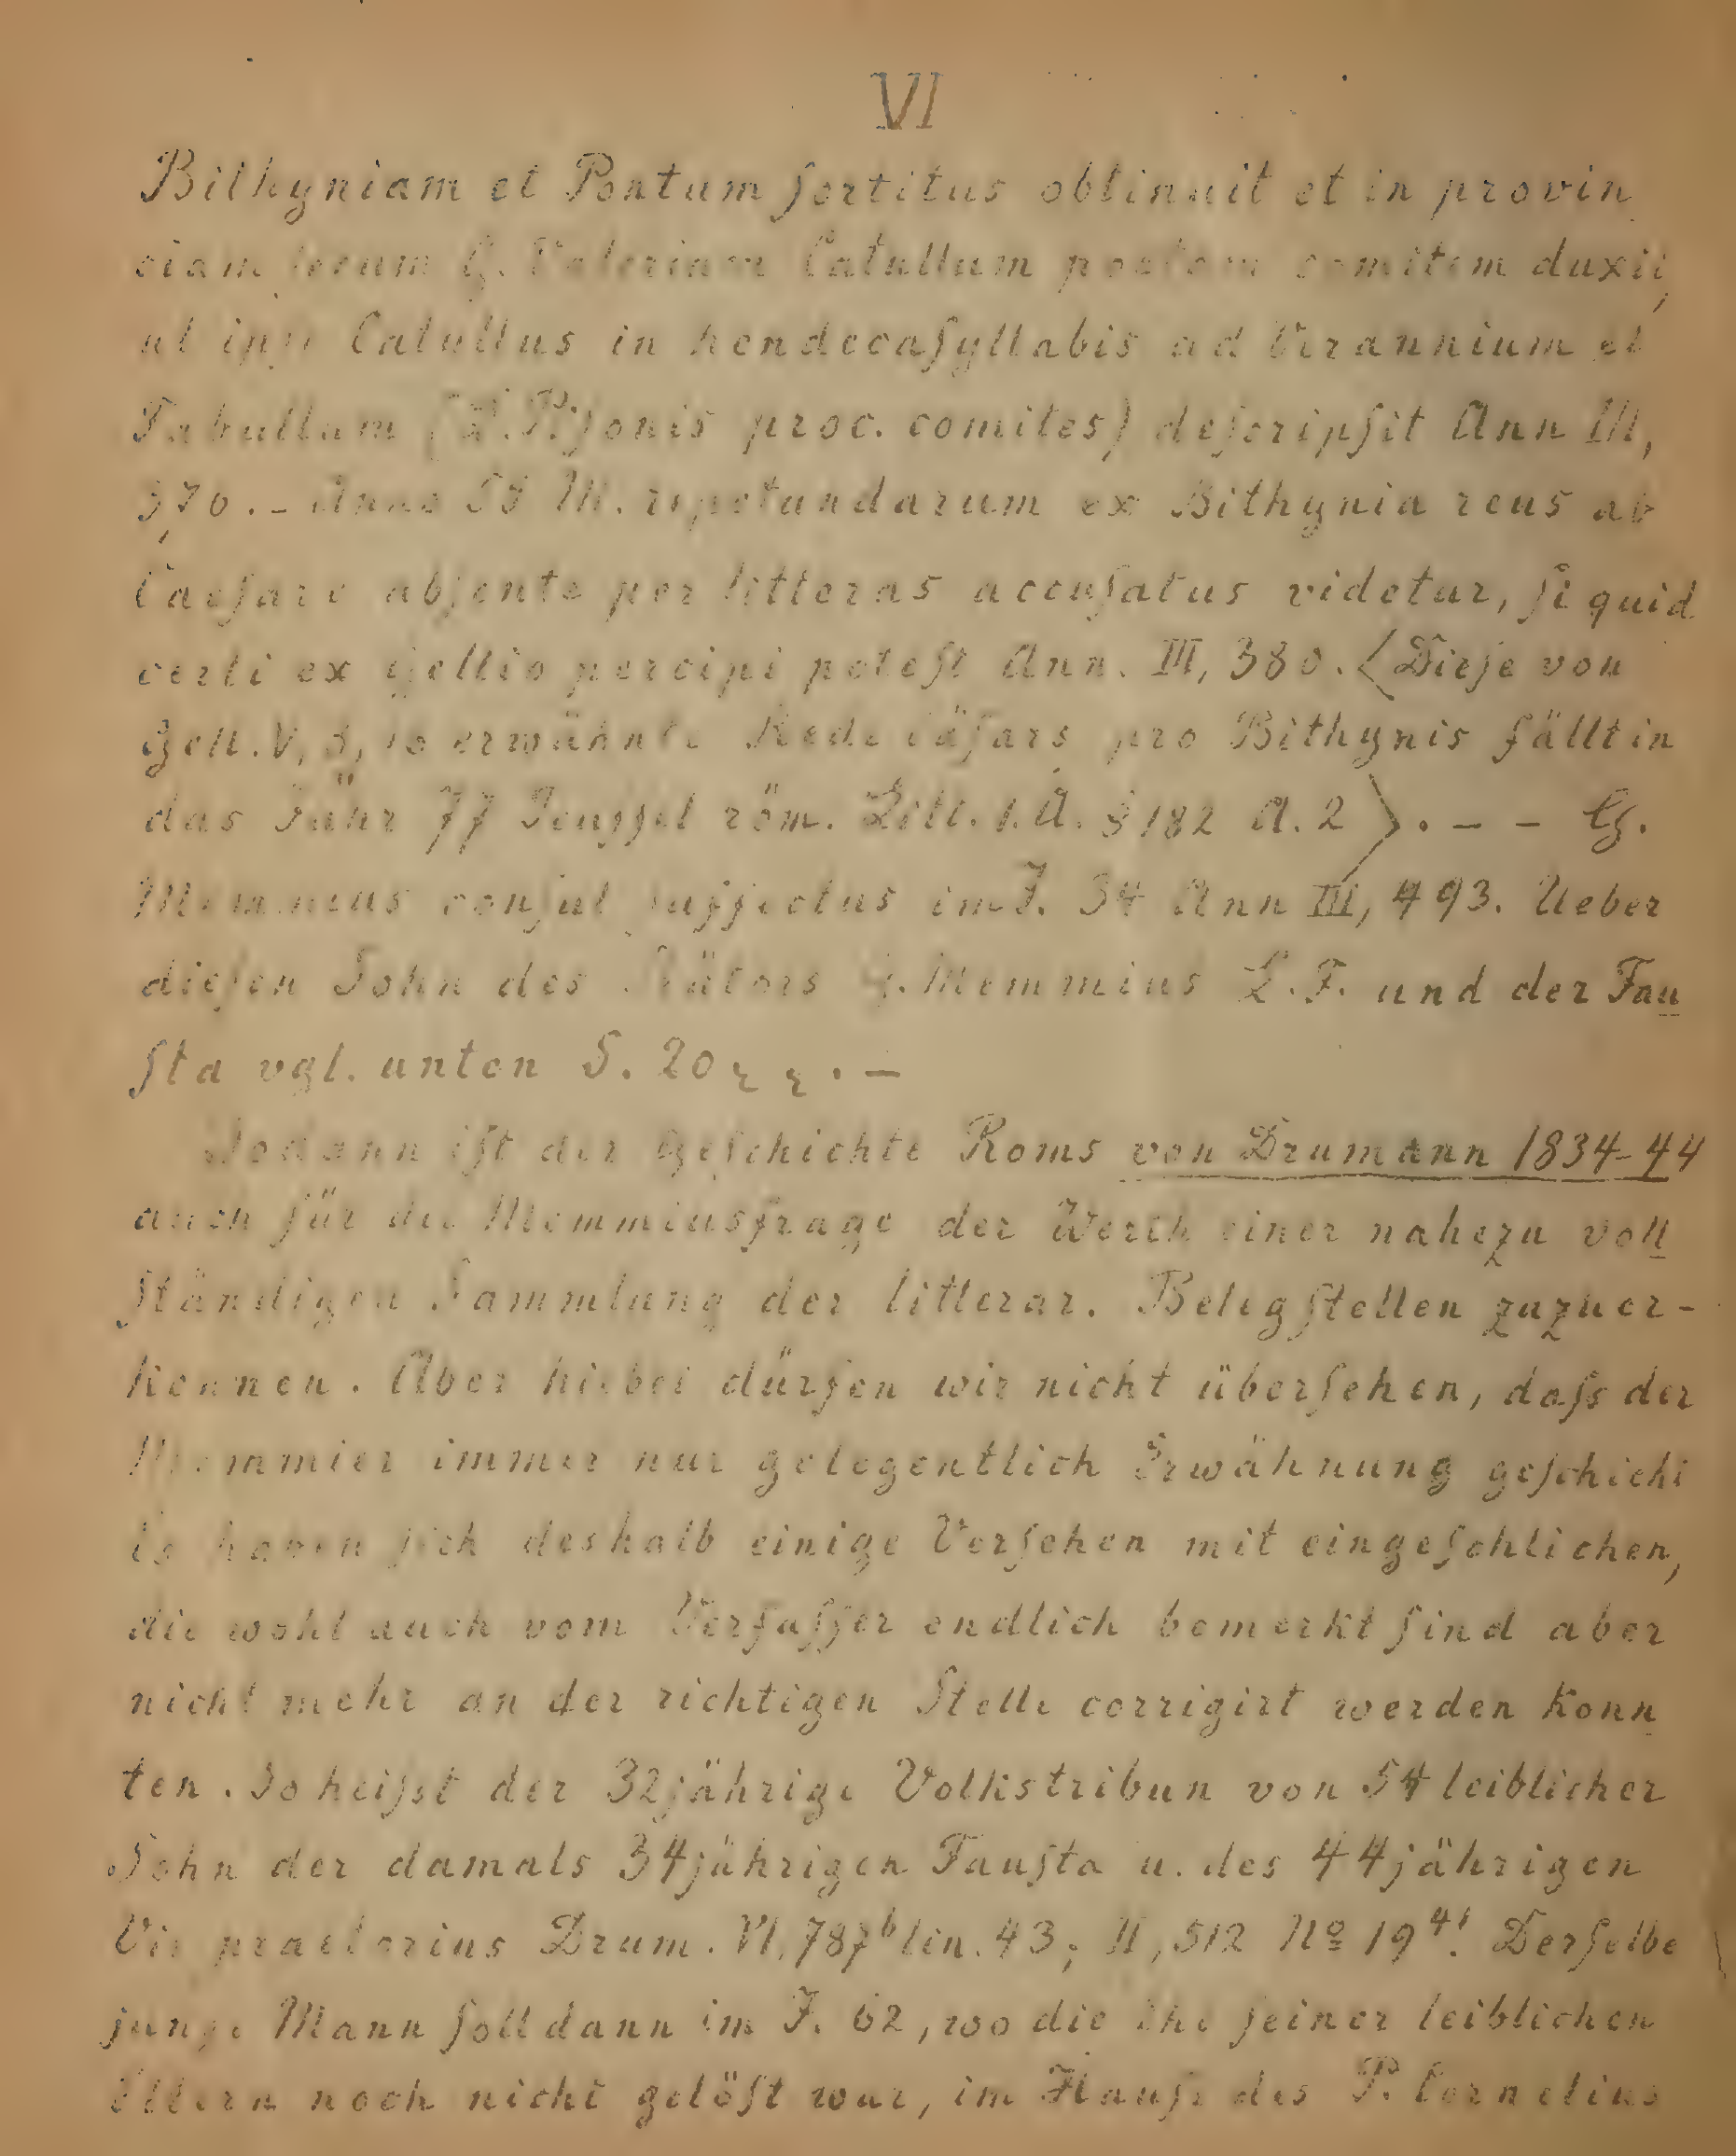 VI
Bithyniam et Pontum ſortitus obtinuit et in provin
ciam secum C. Valerium Catullum poetam comitem duxit,
ut ipse Catullus in hendecaſyllabis ad Verannium et
Fabullum (L. Piſonis proc. comites) deſcripſit Ann III,
370. – Anno 54 M. repetundarum ex Bithynia reus ab
Caeſare abſente per litteras accuſatus videtur, ſi quid
certi ex Gellio percipi poteſt Ann. III, 380. <Dieſe von
Gell. V, 13, erwähnte Rede Cäſars pro Bithynis fällt in
das Jahr 77 Teuffel röm. Litt. 1. A. § 182 A. 2>. – – C.
Memmius conſul ſuffectus im J. 34 Ann III, 493. Ueber
dieſen Sohn des Prätors C. Memmius L. F. und der Fau
ſta vgl. unten S. 20 . –
Sodann iſt der Geſchichte Roms von Drumann 1834–44
auch für die Memmiusfrage der Werth einer nahezu voll
ſtändigen Sammlung der litterar. Belegſtellen zuzuer-
kennen. Aber hiebei dürfen wir nicht überſehen, daſs der
Memmier immer nur gelegentlich Erwähnung geſchieht
Es haben ſich deshalb einige Verſehen mit eingeſchlichen,
die wohl auch vom Verfaſſer endlich bemerkt ſind aber
nicht mehr an der richtigen Stelle corrigirt werden konn
ten. So heiſst der 32jährige Volkstribun von 54 leiblicher
Sohn der damals 34jährigen Fauſta u. des 44jährigen
Vir praetorius Drum. VI, 787 b lin. 43; II, 512 Nº 19 41. Derſelbe
junge Mann ſoll dann im J. 62, wo die Ehe ſeiner leiblichen
Eltern noch nicht gelöſt war, im Hauſe des P. Cornelius